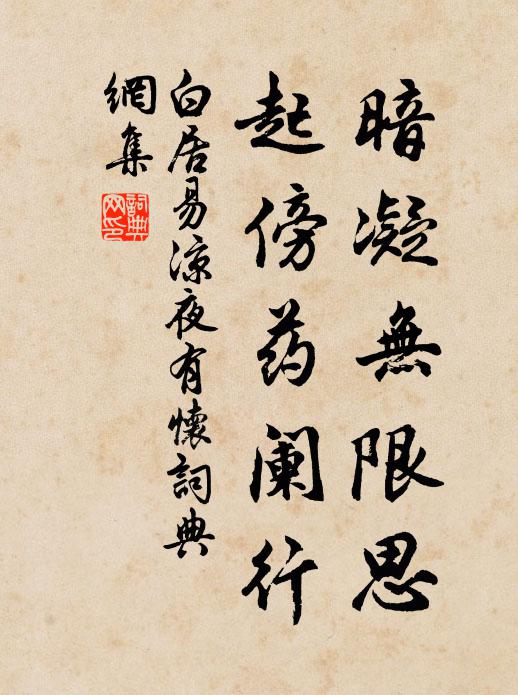 暗凝無限思
起傍药阑行
白居易凉夜有懷詞典
網集
詞典
网印